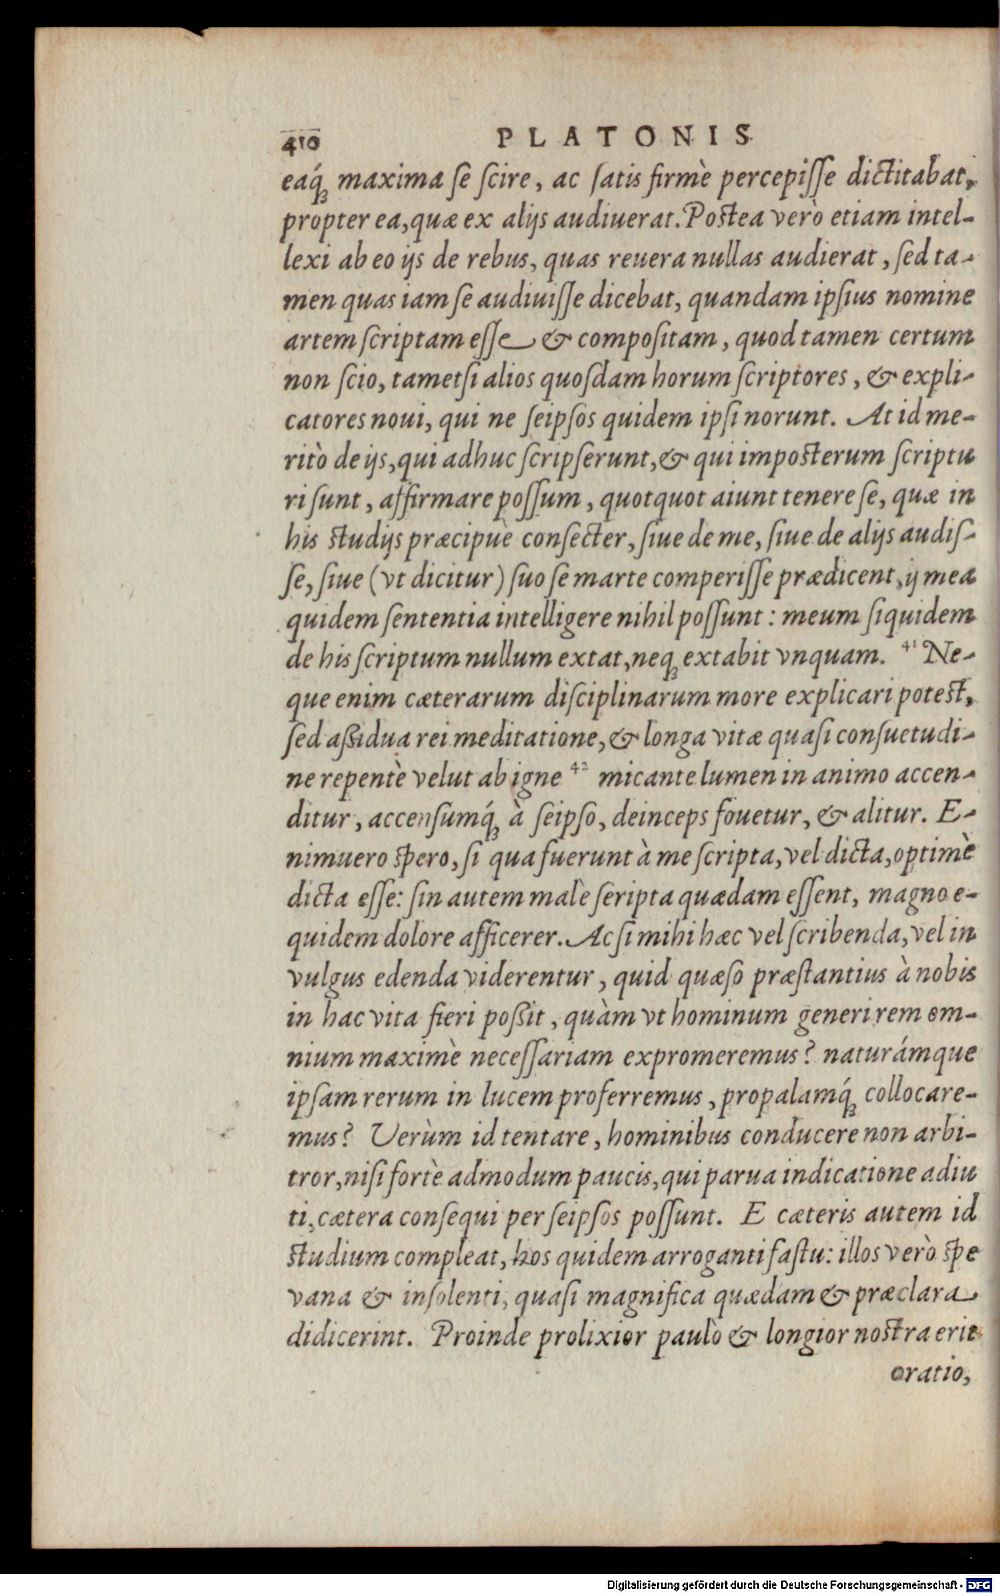 410 PLATONIS
eaq́ꝫ maxima se scire, ac satis firmè percepisse dictitabat,
propter ea, quæ ex alijs audiuerat. Postea verò etiam intel-
lexi ab eo ijs de rebus, quas reuera nullas audierat, sed ta-
men quas iam se audiuisse dicebat, quandam ipsius nomine
artem scriptam esse & compositam, quod tamen certum
non scio, tametsi alios quosdam horum scriptores, & expli-
catores noui, qui ne seipsos quidem ipsi norunt. At id me-
ritò de ijs, qui adhuc scripserunt, & qui imposterum scriptu
ri sunt, affirmare possum, quotquot aiunt tenere se, quæ in
his studijs præcipuè consecter, siue de me, siue de alijs audis-
se, siue (vt dicitur) suo se marte comperisse prædicent, ij mea
quidem sententia intelligere nihil possunt: meum siquidem
de his scriptum nullum extat, neqꝫ extabit vnquam. 41 Ne-
que enim cæterarum disciplinarum more explicari potest,
sed aßidua rei meditatione, & longa vitæ quasi consuetudi-
ne repentè velut ab igne 42 micante lumen in animo accen-
ditur, accensumq́ꝫ à seipso, deinceps fouetur, & alitur. E-
nimuero spero, si qua fuerunt à me scripta, vel dicta, optimè
dicta esse: sin autem malè scripta quædam essent, magno e-
quidem dolore afficerer. Ac si mihi hæc vel scribenda, vel in
vulgus edenda viderentur, quid quæso præstantius à nobis
in hac vita fieri poßit, quàm vt hominum generi rem om-
nium maximè necessariam expromeremus? naturámque
ipsam rerum in lucem proferremus, propalamq́ꝫ collocare-
mus? Verùm id tentare, hominibus conducere non arbi-
tror, nisi fortè admodum paucis, qui parua indicatione adiu
ti, cætera consequi per seipsos possunt. E cæteris autem id
studium compleat, hos quidem arroganti fastu: illos verò spe
vana & insolenti, quasi magnifica quædam & præclara
didicerint. Proinde prolixior paulò & longior nostra erit
oratio,
Digitalisierung gefördert durch die Deutsche Forschungsgemeinschaft - DFG